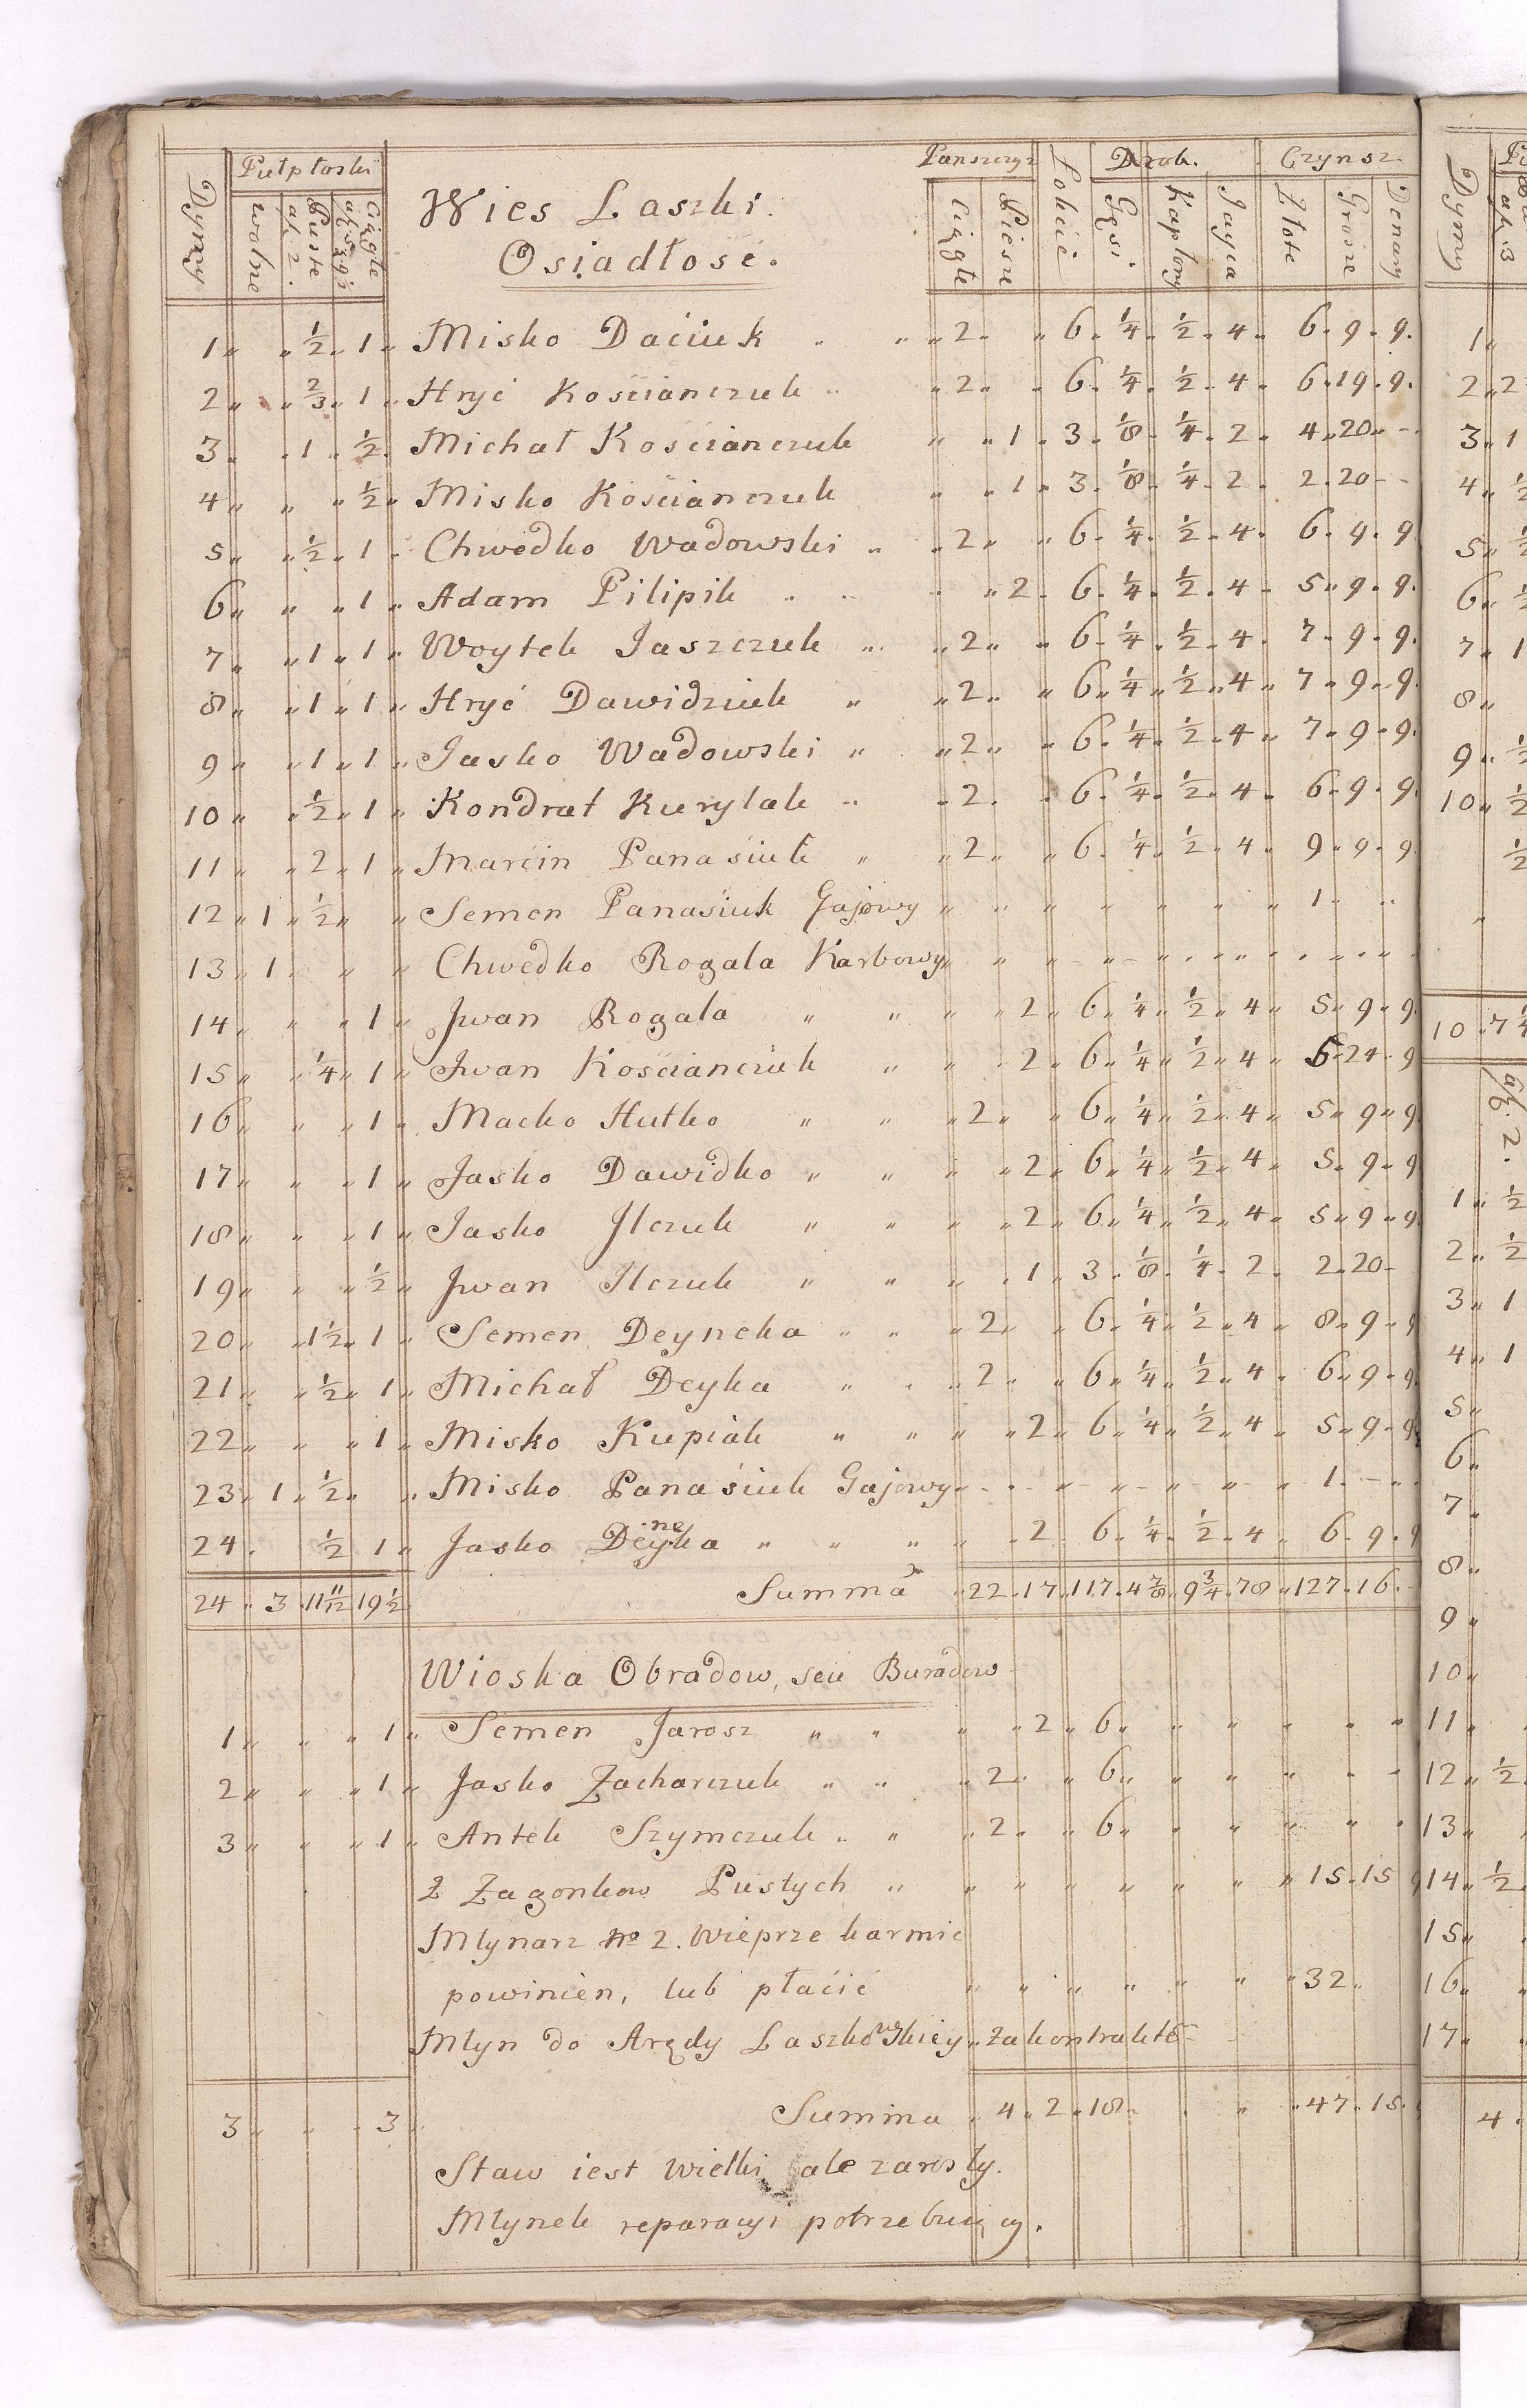 Dymy Pułpłoski Wies Laszki. Panszczyz Łokcie Drob. Czynsz.
wolne Puste a fl. 2. Ciągłe Osiadłość. Ciągłe Piesze Gęsi. Kapłony Jayca Złote Grosze Denary
1 „ „ 1/2 „ 1 „ Misko Daciuk „ „ 2 „ „ 6 „ 1/4 „ 1/2 „ 4 „ 6 „ 9 „ 9.
2 „ „ 2/3 „ 1 „ Hryć Kościanczuk „ 2 „ „ 6 „ 1/4 „ 1/2 „ 4 „ 6 „ 19 „ 9.
3 „ „ 1 „ 1/2 „ Michał Kościanczuk „ „ 1 „ 3 „ 1/8 „ 1/4 „ 2 „ 4 „ 20 „ -
4 „ „ „ 1/2 „ Misko Kościanczuk „ „ 1 „ 3 „ 1/8 „ 1/4 „ 2 „ 2 „ 20 - -
5 „ „ 1/2 „ 1 „ Chwedko Wadowski „ „ 2 „ „ 6 „ 1/4 „ 1/2 „ 4 „ 6 „ 9 „ 9
6 „ „ „ 1 „ Adam Pilipik „ „ „ 2 „ 6 „ 1/4 „ 1/2 „ 4 „ 5 „ 9 „ 9.
7 „ „ 1 „ 1 „ Woytek Jaszczuk „ „ 2 „ „ 6 „ 1/4 „ 1/2 „ 4 „ 7 „ 9 „ 9.
8 „ „ 1 „ 1 „ Hryć Dawidziuk „ „ 2 „ „ 6 „ 1/4 „ 1/2 „ 4 „ 7 „ 9 „ 9.
9 „ „ 1 „ 1 „ Jasko Wadowski „ „ 2 „ „ 6 „ 1/4 „ 1/2 „ 4 „ 7 „ 9 „ 9.
10 „ „ 1/2 „ 1 „ Kondrat Kurylak „ „ 2 „ „ 6 „ 1/4 „ 1/2 „ 4 „ 6 „ 9 „ 9
11 „ „ 2 „ 1 „ Marcin Panasiuk „ „ 2 „ „ 6 „ 1/4 „ 1/2 „ 4 „ 9 „ 9 „ 9
12 „ 1 „ 1/2 „ „ Semen Panasiuk Gajowy „ „ „ „ „ „ „ 1 „ „
13 „ 1 „ „ „ Chwedko Rogala Karbowy „ „ „ „ „ „ „ „ „
14 „ „ „ 1 „ Jwan Rogala „ „ „ „ 2 „ 6 „ 1/4 „ 1/2 „ 4 „ 5 „ 9 „ 9
15 „ „ 1/4 „ 1 „ Jwan Kościanczuk „ „ „ 2 „ 6 „ 1/4 „ 1/2 „ 4 „ 5 „ 24 „ 9
16 „ „ „ 1 „ Macko Hutko „ „ „ 2 „ „ 6 „ 1/4 „ 1/2 „ 4 „ 5 „ 9 „ 9
17 „ „ „ 1 „ Jasko Dawidko „ „ „ „ 2 „ 6 „ 1/4 „ 1/2 „ 4 „ 5 „ 9 „ 9
18 „ „ „ 1 „ Jasko Jlczuk „ „ „ „ 2 „ 6 „ 1/4 „ 1/2 „ 4 „ 5 „ 9 „ 9
19 „ „ „ 1/2 „ Jwan Ilczuk „ „ „ „ 1 „ 3 „ 1/8 „ 1/4 „ 2 „ 2 „ 20 -
20 „ „ 1 1/2 „ 1 „ Semen Deyneka „ „ „ 2 „ „ 6 „ 1/4 „ 1/2 „ 4 „ 8 „ 9 „ 9
21 „ „ 1/2 „ 1 „ Michał Deyka „ „ „ 2 „ „ 6 „ 1/4 „ 1/2 „ 4 „ 6 „ 9 „ 9
22 „ „ „ 1 „ Misko Kupiak „ „ „ „ 2 „ 6 „ 1/4 „ 1/2 „ 4 „ 5 „ 9 „ 9
23 „ 1 „ 1/2 „ „ Misko Panasiuk Gajowy „ „ „ „ „ „ „ 1 „ - „
24 „ 1/2 1 „ Jasko Deyneka „ „ „ „ „ 2 „ 6 „ 1/4 „ 1/2 „ 4 „ 6 „ 9 „ 9
24 „ 3 „ 11 11/12 19 1/2 Summa „ 22 „ 17 „ 117 „ 4 7/8 „ 9 3/4 „ 78 „ 127 „ 16 „
Wioska Obradow, seu Buradow
1 „ „ „ 1 „ Semen Jarosz „ „ „ „ 2 „ 6 „ „ „ „ „ „
2 „ „ „ 1 „ Jasko Zacharczuk „ „ „ 2 „ „ 6 „ „ „ „ „ „
3 „ „ „ 1 „ Antek Szymczuk „ „ „ 2 „ „ 6 „ „ „ „ „ „
Z Zagonkow Pustych „ „ „ „ „ „ „ „ 15 „ 15
Młynarz No 2. Wieprze karmić
powinien, lub płacić „ „ „ „ „ „ „ 32 „
Młyn do Arędy Laszkowskiey „ Zakontrakto
3 „ „ „ 3 Summa „ 4 „ 2 „ 18 „ „ „ „ 47 „ 15
Staw iest wielki ale zarosły.
Młynek reparacyi potrzebuiący.